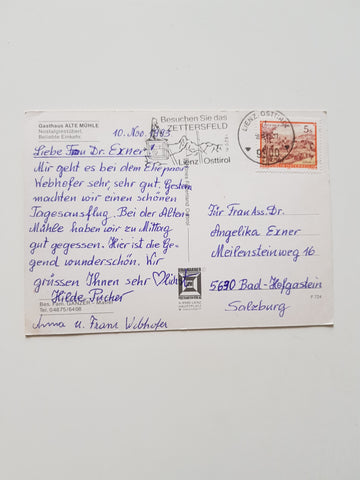 Gasthaus ALTE MÜHLE
Nostalgiestüberl,
Beliebte Einkehr.
10. Nov. 1983
Liebe Frau Dr. Exner!
Mir geht es bei dem Ehepaar
Webhofer sehr, sehr gut. Gestern
machten wir einen schönen
Tagesausflug. Bei der Alten
Mühle haben wir zu Mittag
gut gegessen. Hier ist die Ge-
gend wunderschön. Wir
grüssen Ihnen sehr ♡lich
Hilde Pucher
Bes. Fam.
Tel. 04875/6498
Anna u. Franz Webhofer
Besuchen Sie das
ZETTERSFELD
Lienz Osttirol
LIENZ, OSTTIROL
9900
5 S
Für Frau Ass. Dr.
Angelika Exner
Meilensteinweg 16
5630 Bad-Hofgastein
Salzburg
P 724